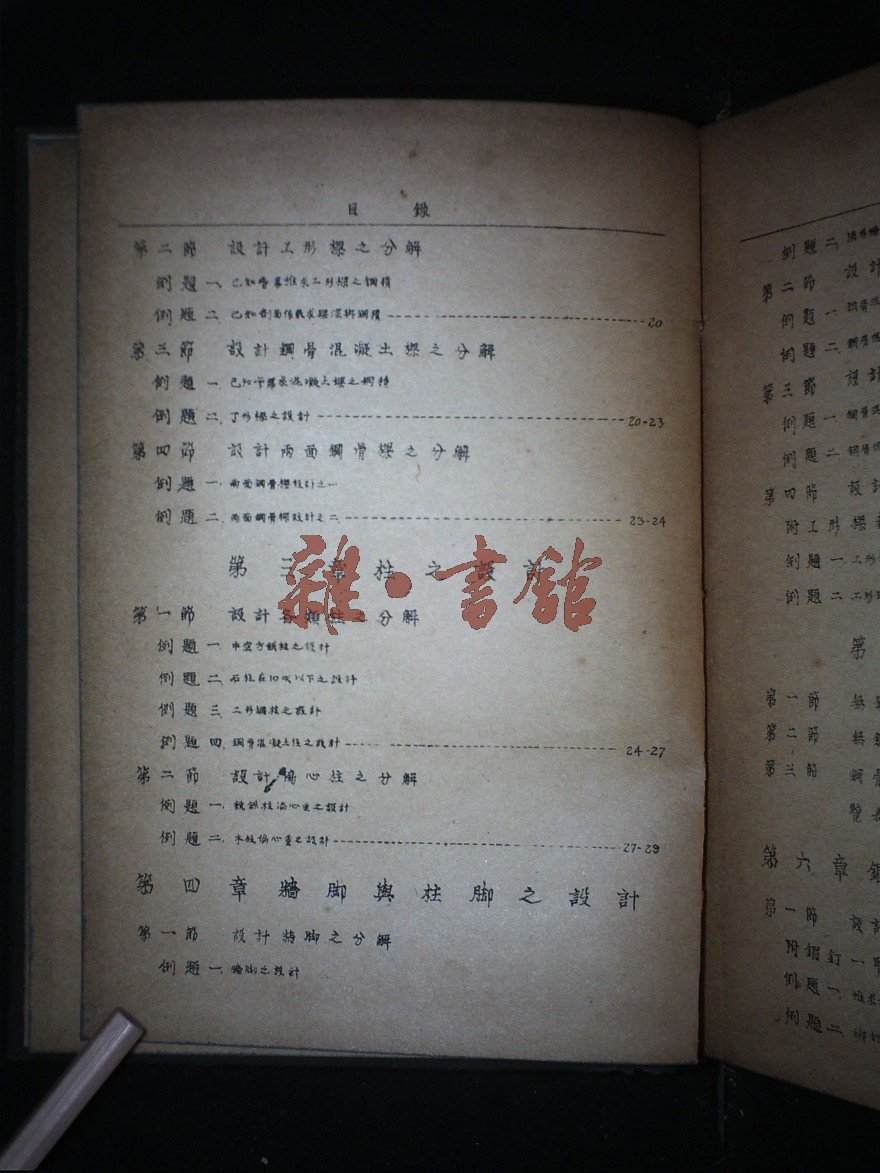 目 錄
第二節 設計工形樑之分解
例題一、已知彎冪推求工形樑之鋼積
例題二、已知剖面係數求樑深與鋼積 20
第三節 設計鋼骨混凝土樑之分解
例題一、已知彎冪求混凝土樑之鋼積
例題二、丁形樑之設計 20-23
第四節 設計兩面鋼骨樑之分解
例題一、兩面鋼骨樑設計之一
例題二、兩面鋼骨樑設計之二 23-24
第三章 柱之設計
雜·書館
第一節 設計各類柱之分解
例題一、中空方鐵柱之設計
例題二、石柱在10呎以下之設計
例題三、工形鋼柱之設計
例題四、鋼骨混凝土柱之設計 24-27
第二節 設計偏心柱之分解
例題一、鐵柱偏心重之設計
例題二、木柱偏心重之設計 27-29
第四章 牆脚與柱脚之設計
第一節 設計牆脚之分解
例題一、牆脚之設計
例題二
第二節 設計
例題一 鋼骨混
例題二 鋼骨混
第三節 設計
例題一、鋼骨混
例題二、鋼骨混
第四節 設計
附工形樑
例題一、工形
例題二、工形
第
第一節 無
第二節 無
第三節 鋼骨
第六章
第一節 設計
附鉚釘一覽
例題一、
例題二、鉚釘